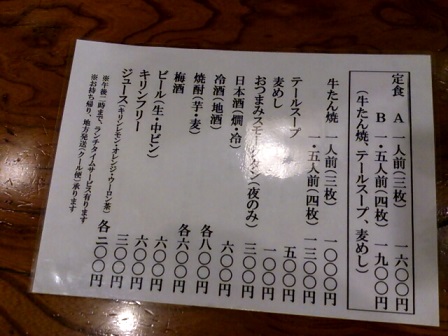 定食 A 一人前(三枚) 一六〇〇円
B 一・五人前(四枚) 一九〇〇円
(牛たん焼、テールスープ、麦めし)
牛たん焼 一人前(三枚) 一〇〇〇円
一・五人前(四枚) 一三〇〇円
テールスープ 五〇〇円
麦めし 一〇〇円
おつまみスモークタン(夜のみ) 三〇〇円
日本酒(燗・冷) 六〇〇円
冷酒(地酒) 各八〇〇円
焼酎(芋・麦) 各六〇〇円
梅酒 六〇〇円
ビール(生・中ビン) 六〇〇円
キリンフリー 三〇〇円
ジュース(キリンレモン・オレンジ・ウーロン茶) 各二〇〇円
※午後二時まで、ランチタイムサービス有ります
※お持ち帰り、地方発送(クール便)承ります